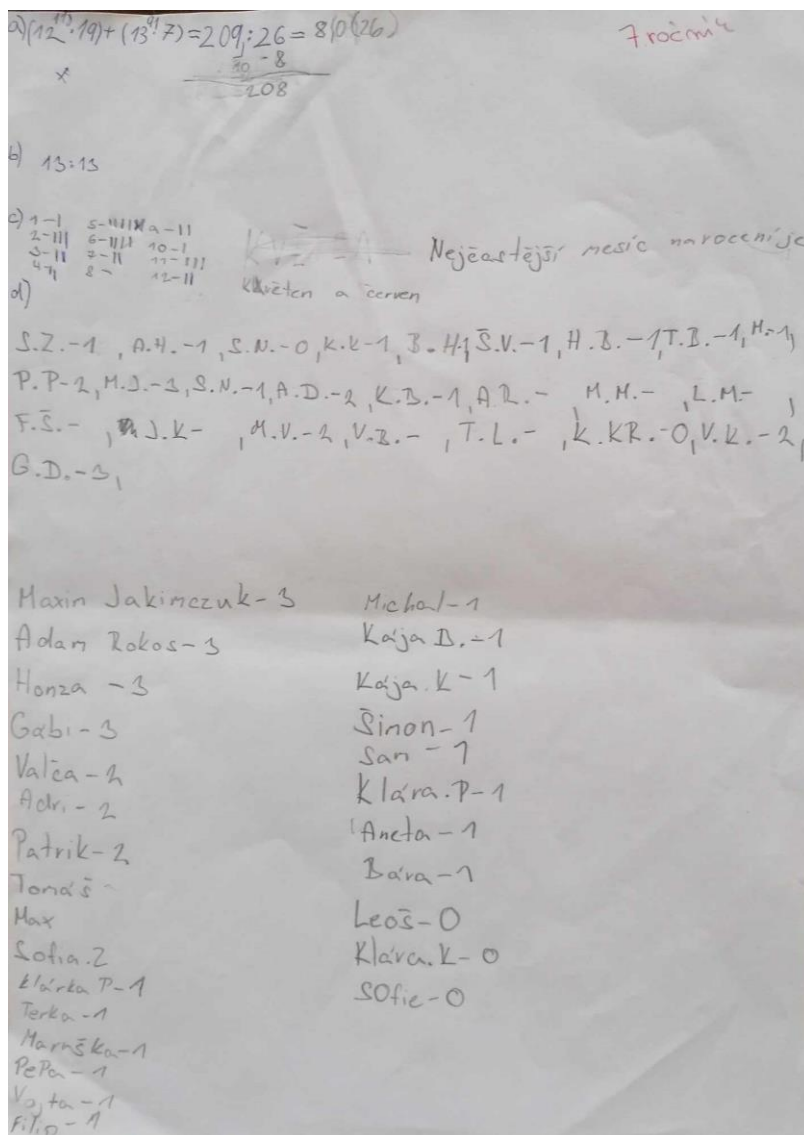 a) (12·19)+(13·7)=209:26=8,0(26)
7. ročník
10 -8
208
b) 13:13
c) 1-I 5-IIIIII 9-II
2-III 6-IIII 10-I
3-II 7-II 11-III
4-II 8- 12-II
Nejčastější mesíc narocení je
Květen a červen
d)
S.Z.-1, A.H.-1, S.N.-0, K.K-1, B.H, Š.V.-1, H.B.-1, T.B.-1, M.-1,
P.P-2, M.J.-3, S.N.-1, A.D.-2, K.B.-1, A.R.- , M.M.- , L.M- ,
F.Š.- , J.K- , M.V.-2, V.B.- , T.L.- , K.KR.-0, V.K.-2,
G.D.-3,
Maxin Jakimczuk-3
Adam Rokos-3
Honza -3
Gabi-3
Valča-2
Adri-2
Patrik-2
Tomáš -
Max
Sofia.2
Klárka P-1
Terka-1
Maruška-1
PePa-1
Vojta-1
Filip-1
Michal-1
Kája B.-1
Kája.K-1
Šimon-1
Sam-1
Klára.P-1
Aneta-1
Bára-1
Leoš-0
Klára.K-0
SOfie-0